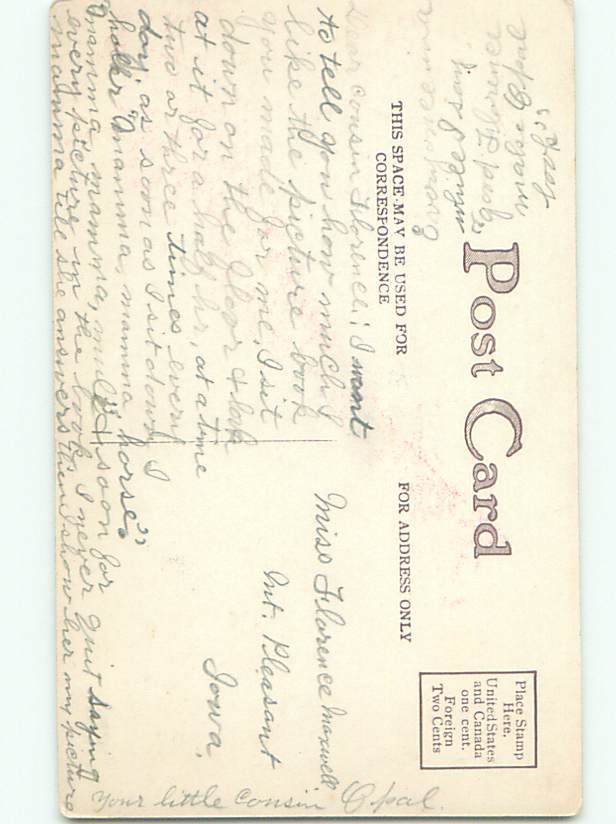 Post Card
THIS SPACE MAY BE USED FOR
CORRESPONDENCE
FOR ADDRESS ONLY
Place Stamp
Here.
United States
and Canada
one cent.
Foreign
Two Cents
Dear cousin Florence; I want
to tell you how much I
like the picture book
you made for me, I sit
down on the floor & look
at it for a half hr, at a time
two or three times every
day as soon as I sit down I
holler "mamma, mamma horse"
mamma, mamma, mule & soon for
every picture in the book, I never quit saying
mamma till she answers then I show her my picture
Your little cousin Opal.
Miss Florence Maxwell
Mt. Pleasant
Iowa.